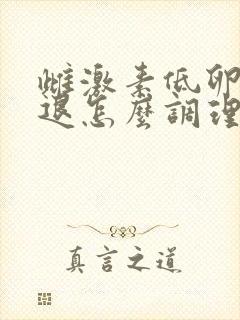 雌激素低卵
退怎麼調理
真言之道